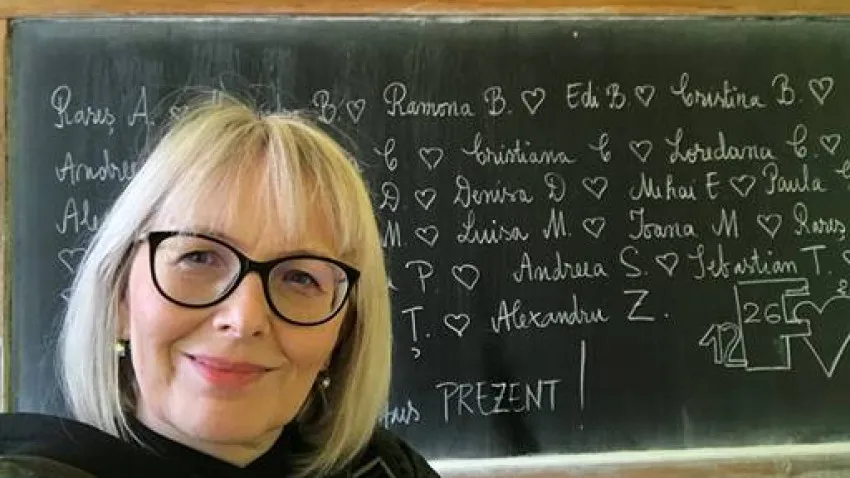 Rareș A. B. ♡ Ramona B. ♡ Edi B. ♡ Cristina B. ♡
Andree C ♡ Cristiana C ♡ Loredana C. ♡
Al D. ♡ Denisa D ♡ Mihai E ♡ Paula
M. ♡ Luisa M. ♡ Ioana M ♡ Rareș
♡ P. ♡ Andreea S. ♡ Sebastian T. ♡
Ț. ♡ Alexandru Z.
12 26 2
us PREZENT!